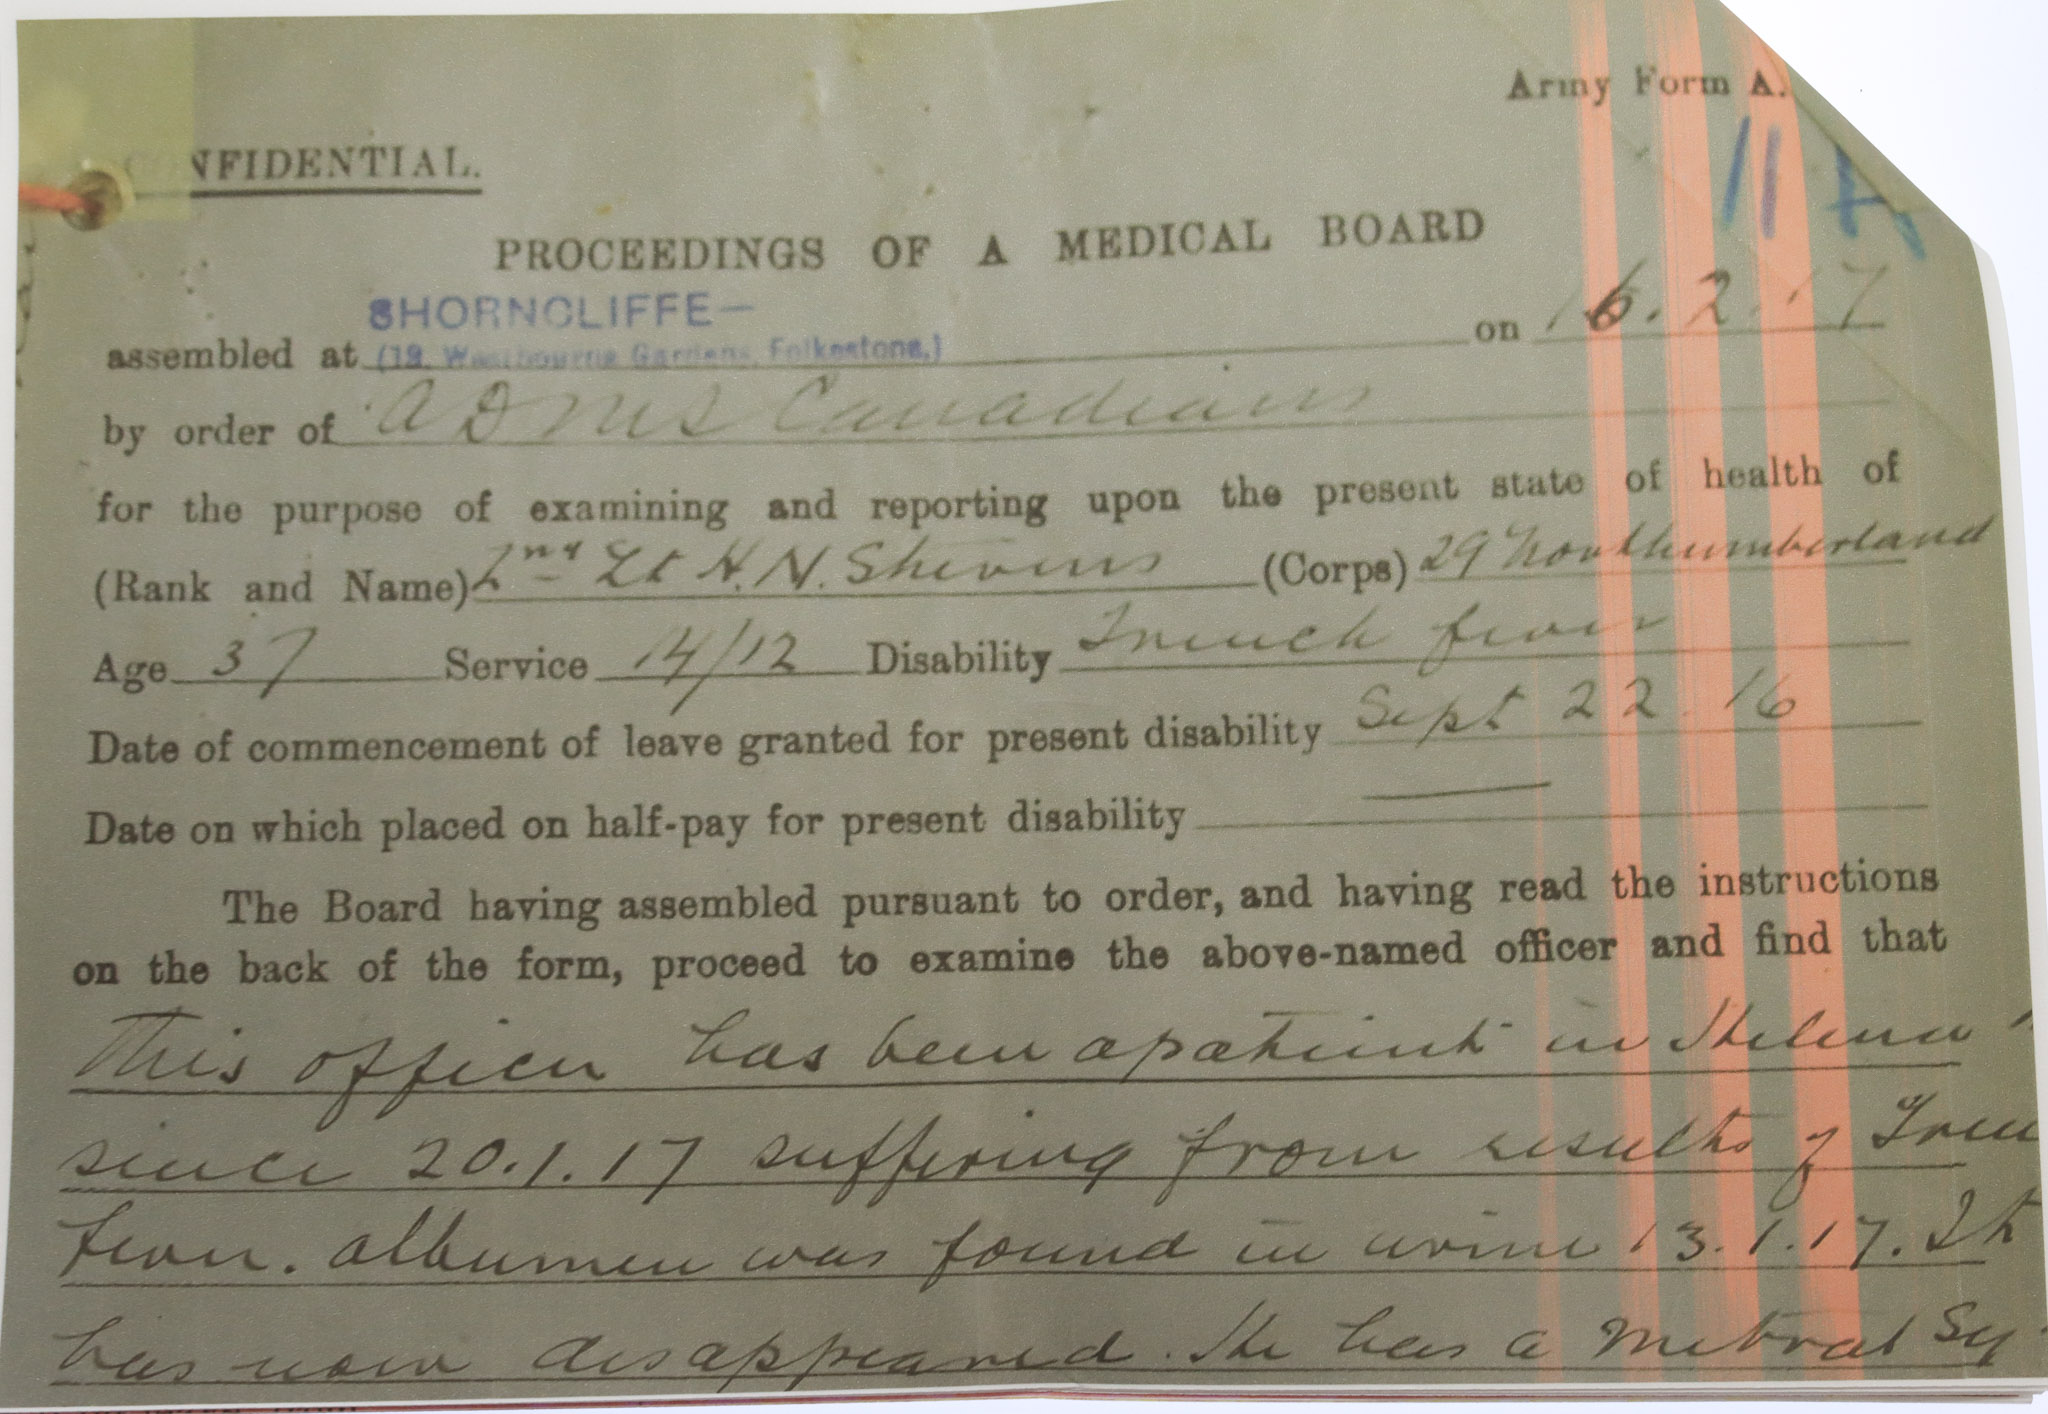 Army Form A.
11 A
CONFIDENTIAL.
PROCEEDINGS OF A MEDICAL BOARD
SHORNCLIFFE—
assembled at (19, Westbourne Gardens, Folkestone,) on 16.2.17
by order of ADMS Canadians
for the purpose of examining and reporting upon the present state of health of
(Rank and Name) 2nd Lt H. N. (Corps) 29 Northumberland
Age 37 Service 14/12 Disability Trench fever
Date of commencement of leave granted for present disability Sept 22.16
Date on which placed on half-pay for present disability —
The Board having assembled pursuant to order, and having read the instructions
on the back of the form, proceed to examine the above-named officer and find that
This officer has been a patient in
since 20.1.17 suffering from results of Tren
fever. albumen was found in urine 13.1.17. It
has now disappeared. He has a Mitral Sy